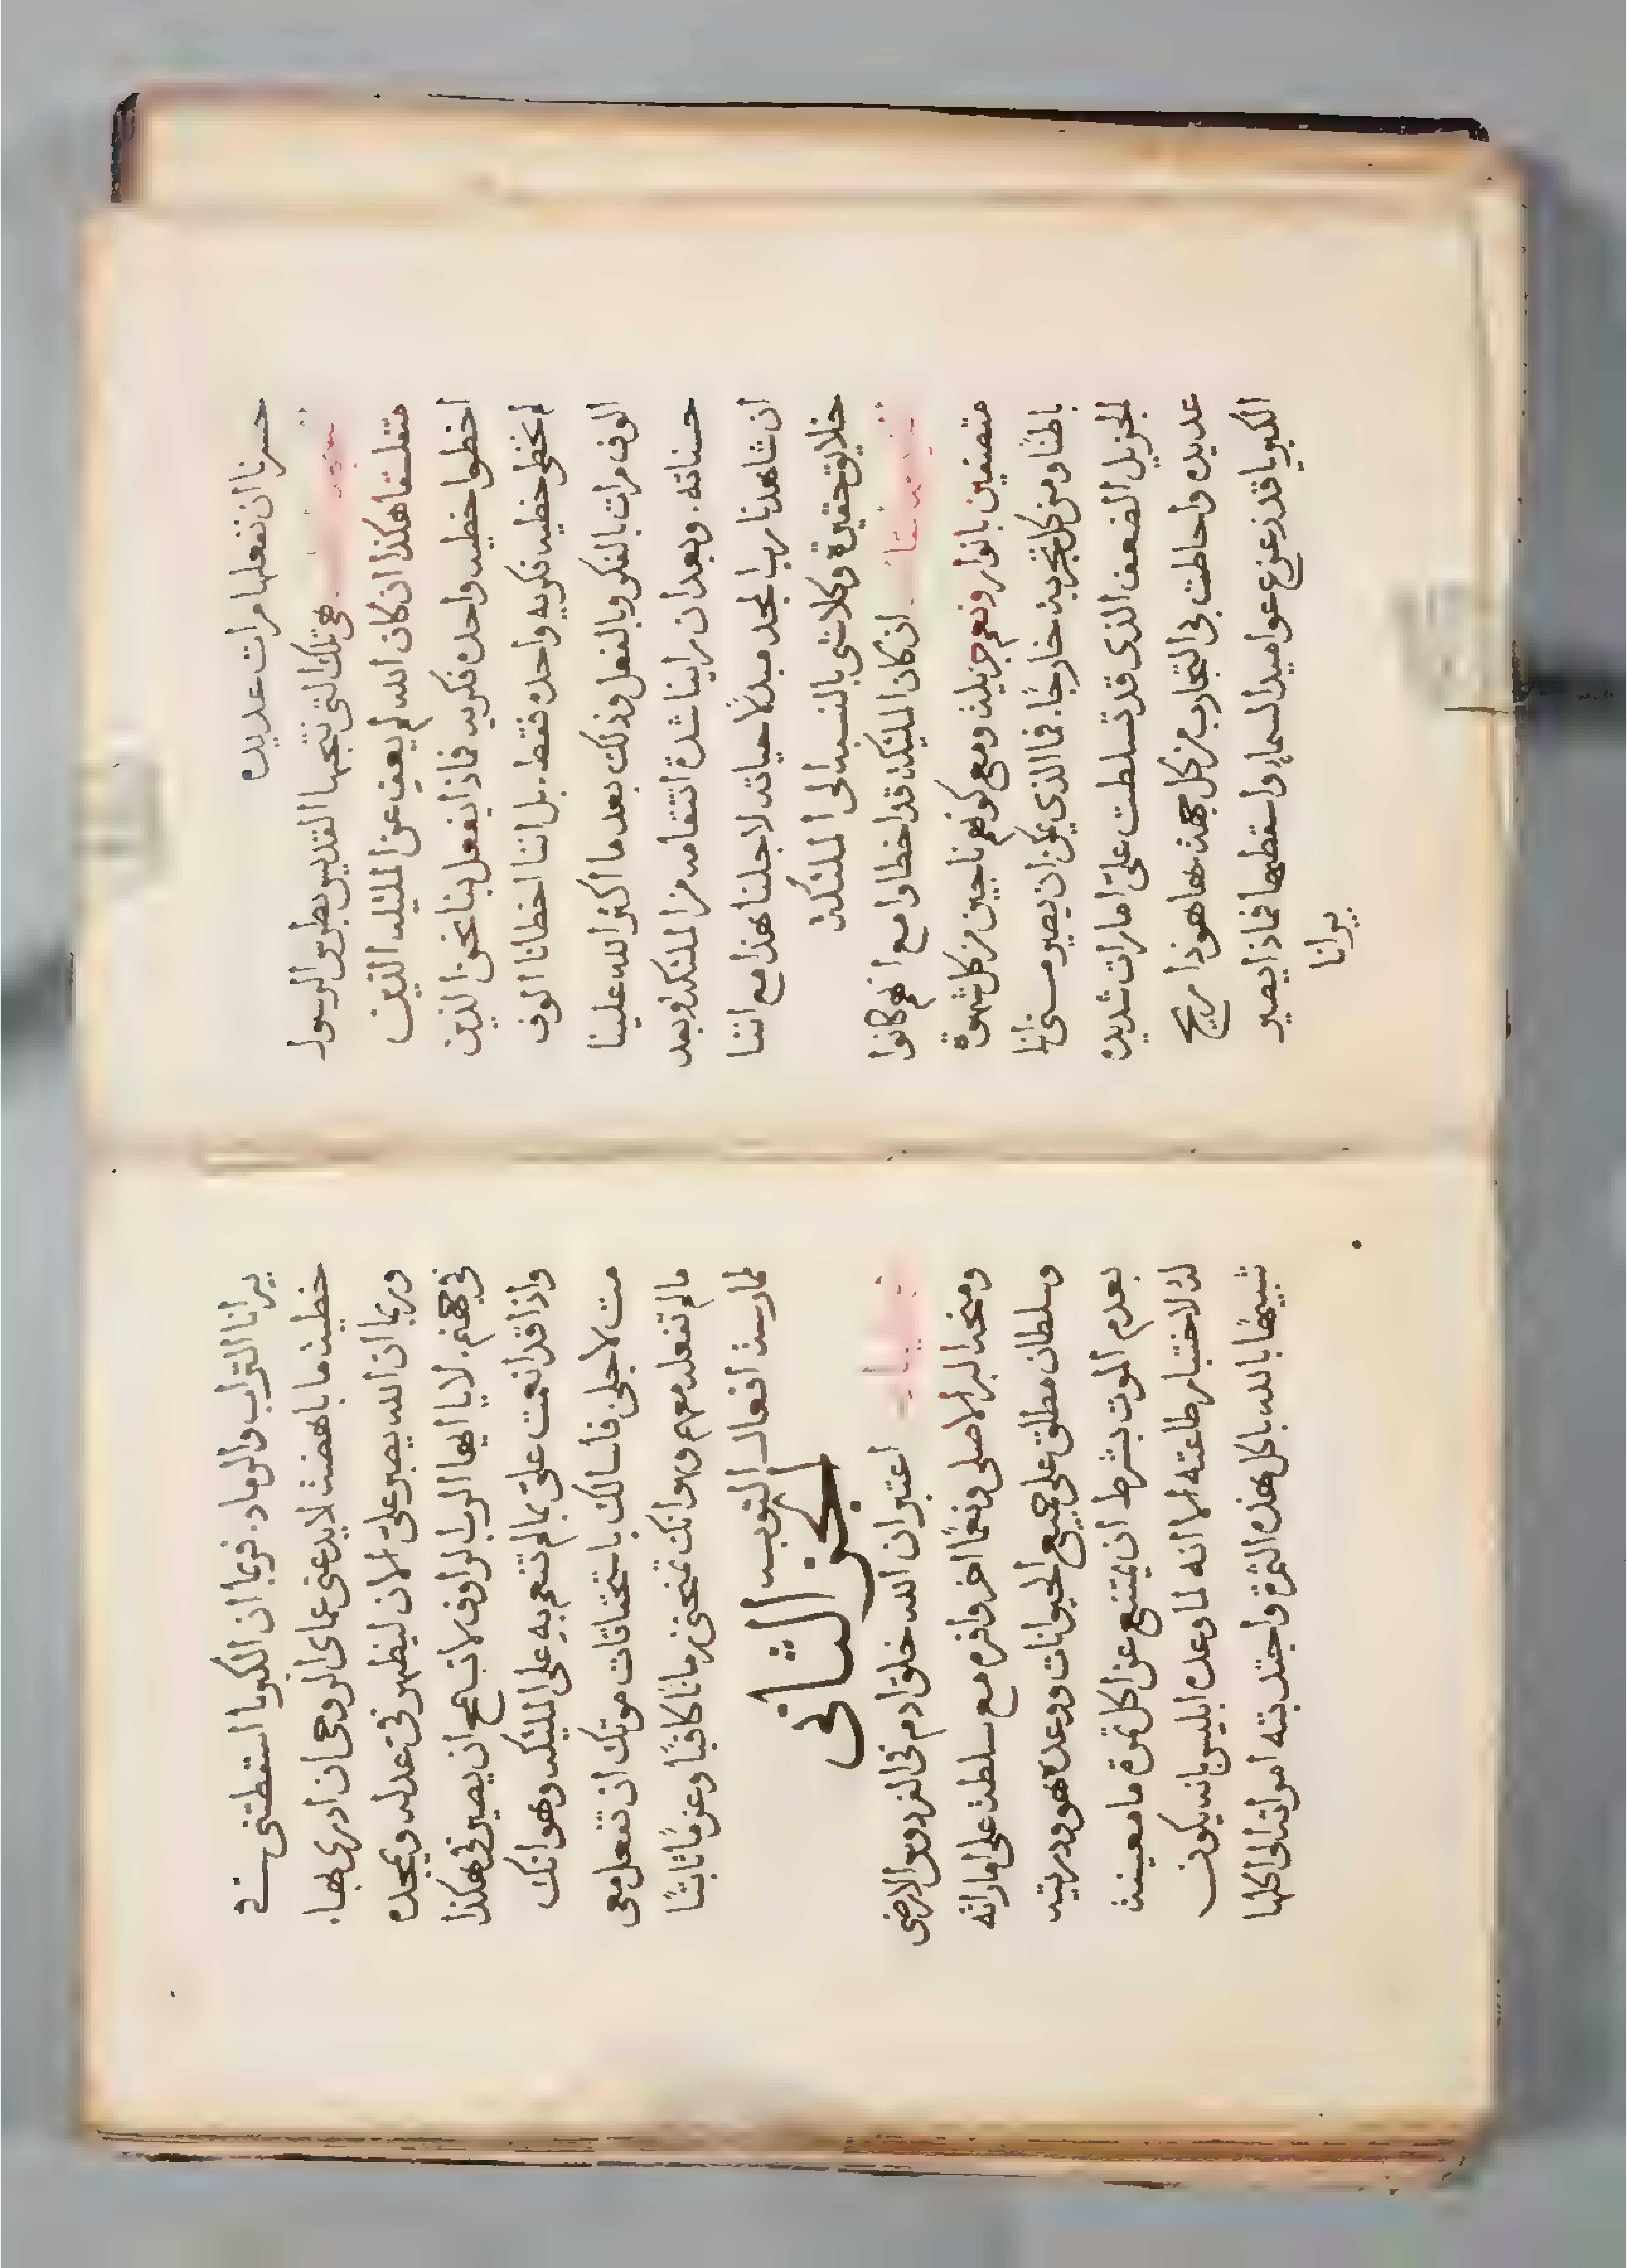 حسرنا ان نفعلها مرات عديده
هي تلك التي نتجها القديس بطرس الرسول
متفلسفا هكذا اذ كان الله لم يعف عن المليكه الذين
اخطوا خطيه واحده فكريه فماذا يفعل بنا نحن الذين
لم نخطي خطيه فكريه واحده فقط. بل اننا اخطانا الوف
الوف مرات بالفكر وبالفعل وذلك بعدما اكثر الله علينا
حسناته. وبعد ان راينا شدة انتقامه من الملئكه وبعد
ان شاهدنا رب المجد مبدلًا حياته لاجلنا هذا مع اننا
خلايق حقيرة وكلا شي بالنسبه الى الملئكه
اذ كان المليكه قد اخطاوا مع انهم كانوا
متصفين بانوار ونعم جزيله ومع كونهم ناجين من كل شهوة
باطنًا ومن كل تجربه خارجًا. فما الذي يمكن ان يصير مني انا
الجزيل الضعف الذي قد تسلطت عليّ امارات شديده
عديده واحاطت بي التجارب من كل جهه ها هوذا ريح
الكبريا قد زعزع عواميد السما واسقطها فماذا يصير
برانا
برانا التراب والرماد. فربما ان الكبريا اسقطتني في
خطيه ما باهضه لا يدعني عماي الروحي ان ادري بها.
وربما ان الله يصبر عليّ الان ليظهر فيّ عدله ويمجده
في جهنم. لا يا ايها الرب الراوف لا تسمح ان يصير فيّ هكذا
واذا قد انعمت عليّ بما لم تنعم به على المليكه وهو انك
مت لاجلي فاسالك باستحقاقات موتك ان تفعل معي
مالم تفعله معهم وهو انك تمنحني زمانًا كافيًا وعزمًا ثابتًا
لمارسة افعال التوبه
الجز الثاني
اعتبر ان الله خلق ادم في الفردوس الارضي
ومنحه البر الاصلي ونعمًا اخر وافره مع سلطة على اماراته
وسلطان مطلق على جميع الحيوانات ووعده هو وذريته
بعدم الموت بشرط ان يمتنع عن اكل ثمرة ما معينة
له لاختبار طاعته الا انه لما وعده ابليس بانه يكون
شبيهًا بالله باكل هذه الثمرة واجتذبته امراته الى اكلها